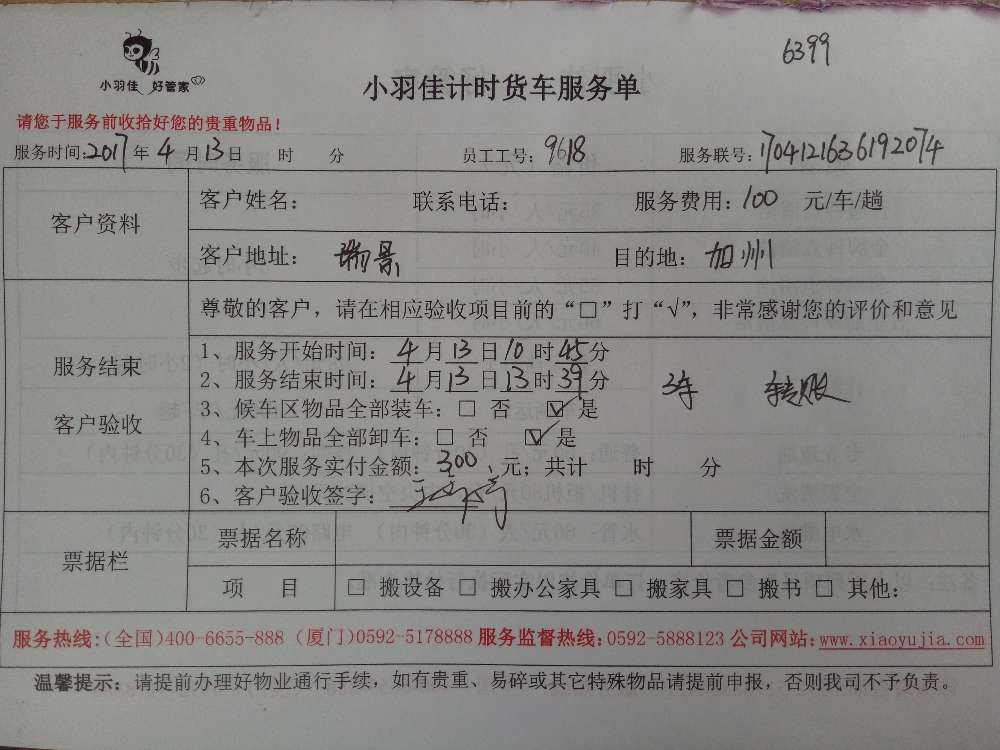 6399
小羽佳 好管家
小羽佳计时货车服务单
请您于服务前收拾好您的贵重物品！
服务时间：2017年4月13日 时 分 员工工号：9618 服务联号：1704121636192074
客户资料
客户姓名： 联系电话： 服务费用：100 元/车/趟
客户地址：瑞景 目的地：加州
服务结束
客户验收
尊敬的客户，请在相应验收项目前的“□”打“√”，非常感谢您的评价和意见
1、服务开始时间：4月13日10时45分
2、服务结束时间：4月13日13时39分
3车 转账
3、候车区物品全部装车：□ 否 ☑是
4、车上物品全部卸车：□ 否 ☑是
5、本次服务实付金额：300、元；共计 时 分
6、客户验收签字：
票据栏
票据名称 票据金额
项 目 □ 搬设备 □ 搬办公家具 □ 搬家具 □ 搬书 □ 其他：
服务热线：（全国）400-6655-888（厦门）0592-5178888 服务监督热线：0592-5888123 公司网站：www.xiaoyujia.com
温馨提示：请提前办理好物业通行手续，如有贵重、易碎或其它特殊物品请提前申报，否则我司不予负责。